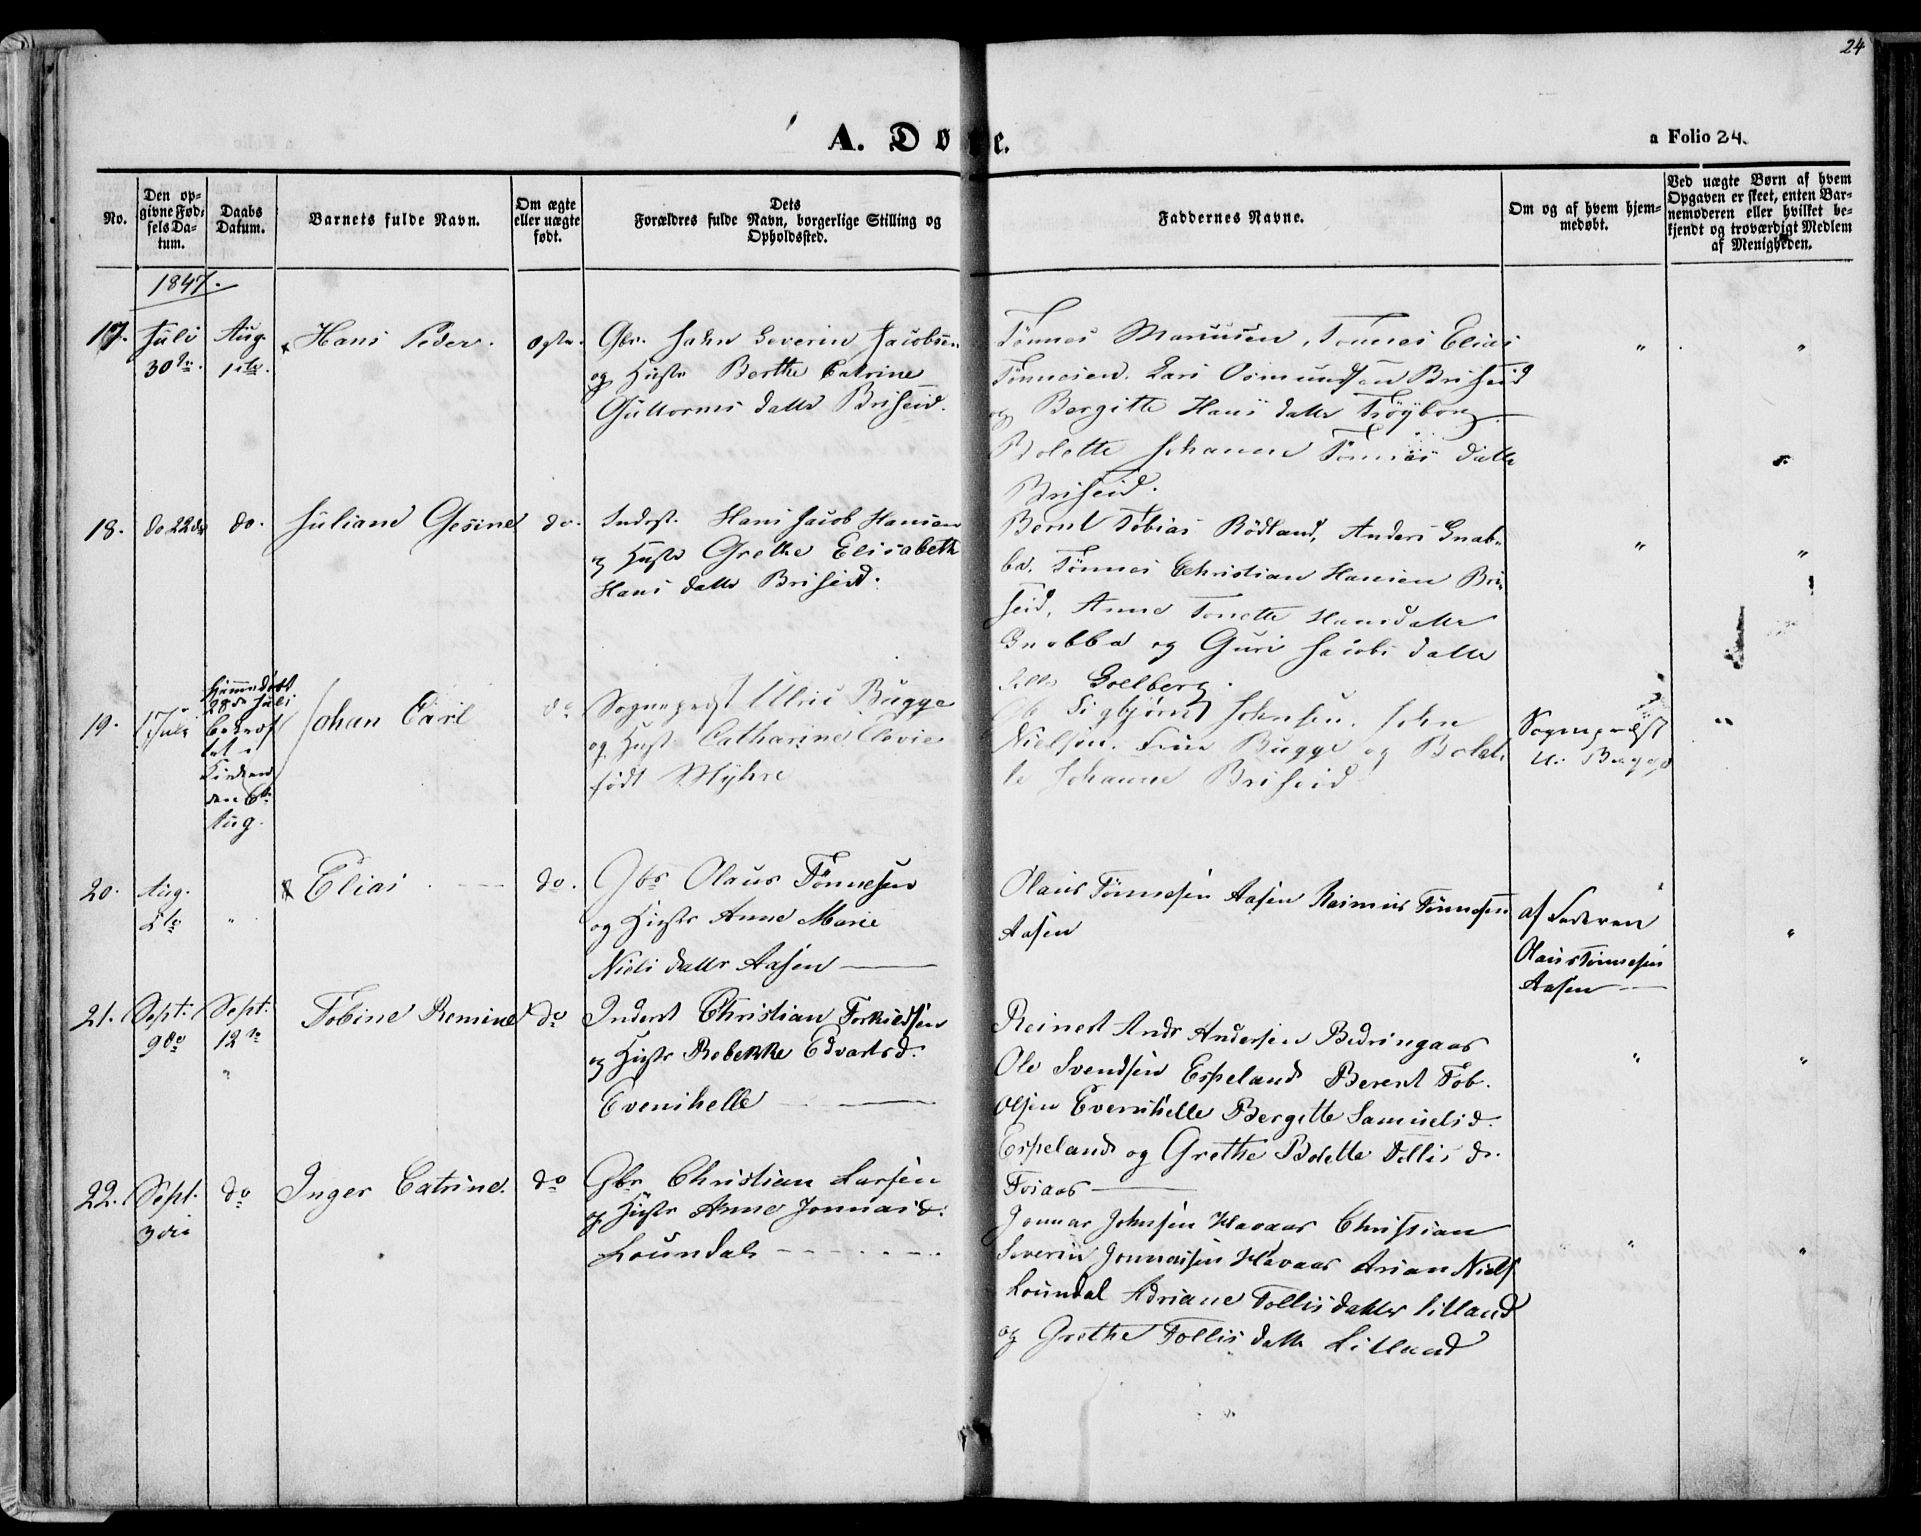 24
A. Døbte.
a Folio 24.
No.
Den op-
givne Fød-
sels Da-
tum.
Daabs
Datum.
Barnets fulde Navn.
Om ægte
eller uægte
født.
Dets
Forældres fulde Navn, borgerlige Stilling og
Opholdssted.
Faddernes Navne.
Om og af hvem hjem-
medøbt.
Ved uægte Børn af hvem
Opgaven er skeet, enten Bar-
nemoderen eller hvilket be-
kjendt og troværdigt Medlem
af Menigheden.
1847.
17.
Juli
30te
Aug.
1ste
Hans Peder.
ægte.
Gbr. John Severin Jacobsen
og Hustr Berthe Catrine
Guttorms datter Briseid.
Tønnes Mariusen, Tønnes Elias
Tønnesen. Lars Osmundsen Briseid
og Bergitte Hans datter Frøyborg
Bolette Johanne Tønnes datter
Briseid.
"
"
18.
do 22de
do.
Juliane Gesine
do.
Inderst. Hans Jacob Hansen
og Hustr Grethe Elisabeth
Hans datter Briseid.
Bernt Tobias Rødland, Anders Gnab-
ba. Tønnes Christian Hansen Bri-
seid, Anne Tonette Hansdatter
Gnabba og Guri Jacobs datter
Goelberg.
"
"
19.
17 Juli
Hjemmedøbt
28de Juli
bekræf
tet i
Kirken
den 6te
Aug.
Johan Carl
do
Sognepræst Ulric Bugge
og Hust Catharine Clovie
født Myhre
Sigbjørn Johnsen. John
Nielsen. Frue Bugge og Bolet-
te Johanne Briseid
Sognepræst
U. Bugge
"
20.
Aug.
"
Elias
do.
Gbr Olaus Tønnesen
og Hustr Anne Marie
Niels datter Aasen
Olaus Tønnesen Aasen Rasmus Tønnesen
Aasen
af Faderen
Olaus Tønnesen
Aasen
"
21.
Sept.
9de
Sept.
12te
"
Tobine Remine
do
Inderst Christian Torkildsen
og Hustr Rebekke Edvartsd.
Evenshelle
Reinert Andr Andersen Bedringaas
Ole Svendsen Espeland Berent Tob.
Olsen Evenshelle Bergitte Samuelsd.
Espeland og Grethe Bolette Tollis d.
Foiaas
"
"
22.
Sept.
3die
do
Inger Catrine.
do
Gbr Christian Larsen
og Hustr Anne Jonnas d.
Loundal
Jonnas Johnsen Havaas Christian
Severin Jonnassen Havaas Arian Niels
Loundal Adriane Tollisdatter Litland
og Grethe Tollis datter Litland
"
"